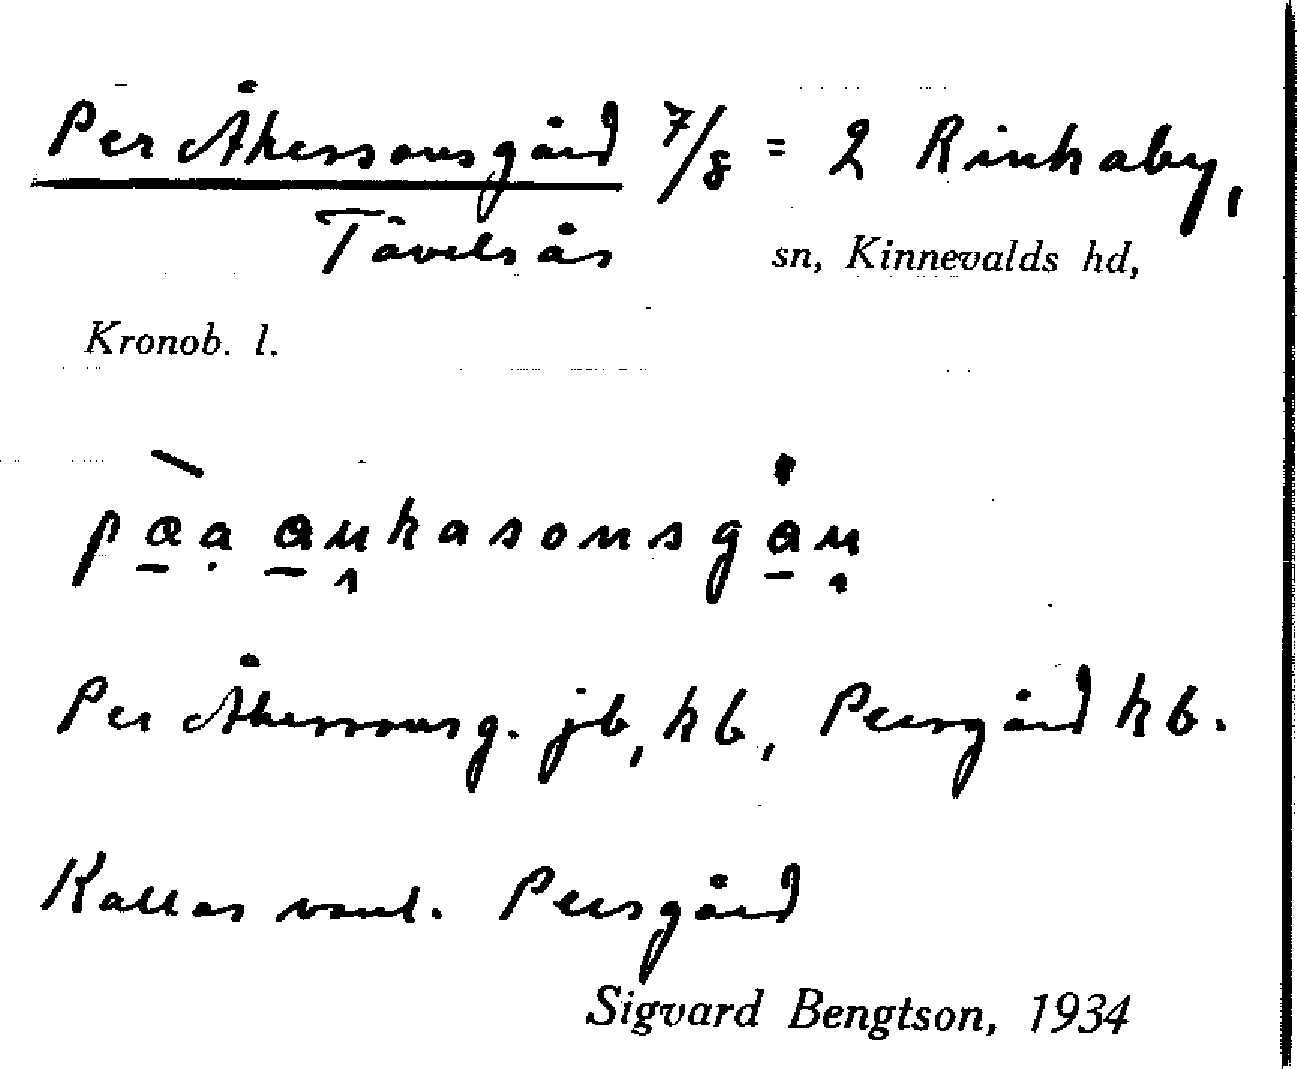 Per Åkessonsgård 7/8 = 2 Rinkaby,
Tävelsås sn, Kinnevalds hd,
Kronob. l.
Per Åkessonsg. jb, hb, Persgård hb.
Kallas vanl. Persgård
Sigvard Bengtson, 1934